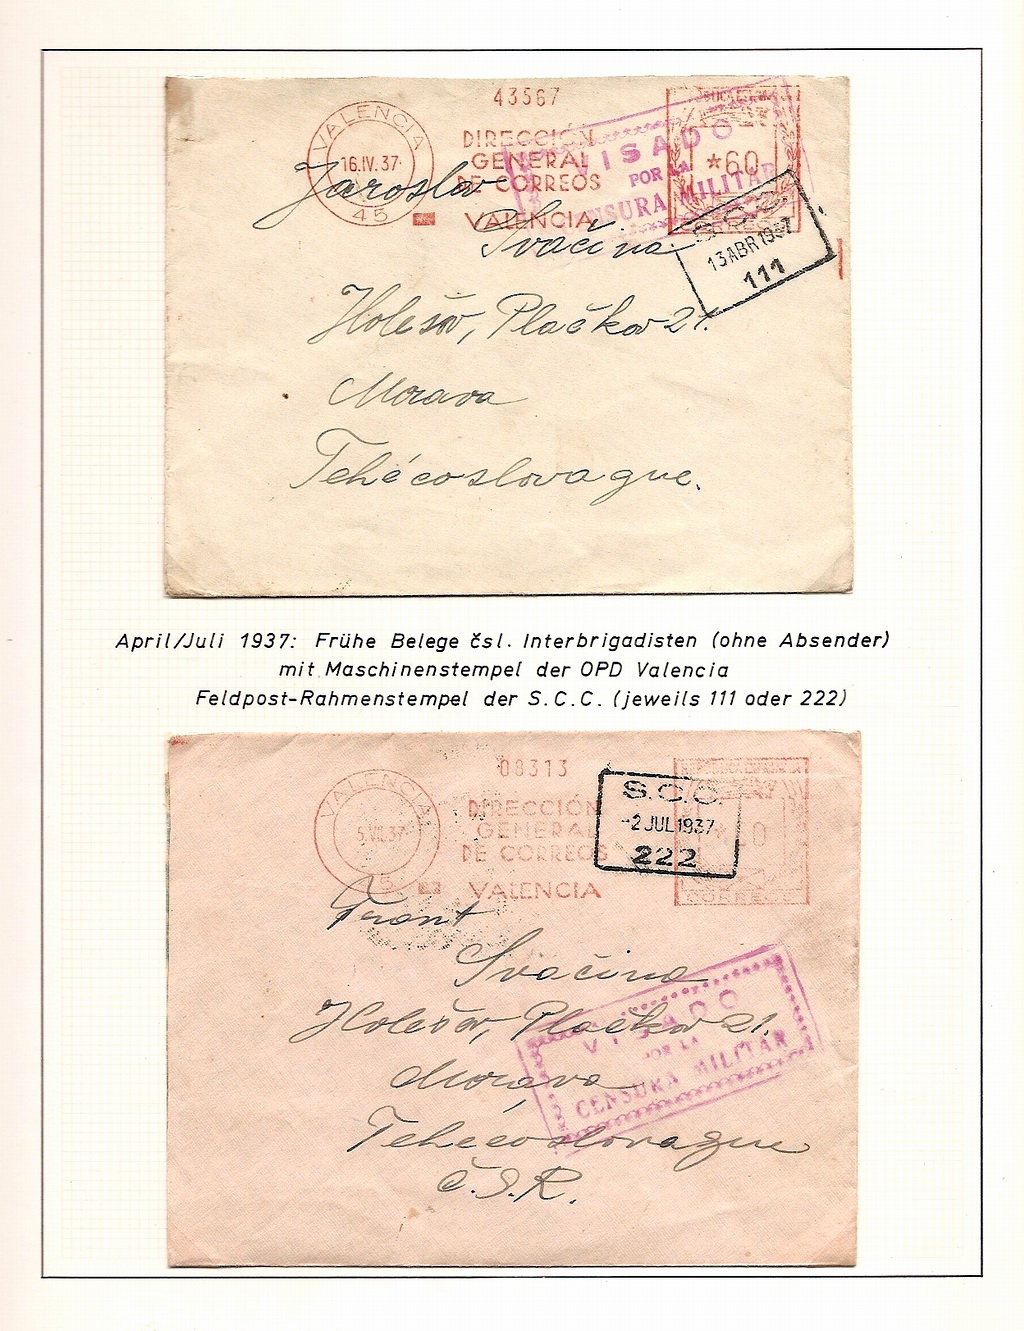 43567
VALENCIA
16.IV.37
45
DIRECCIÓN
GENERAL
DE CORREOS
VALENCIA
*60
CORREOS
VISADO
POR LA
CENSURA MILITAR
S.C.C.
13 ABR 1937
111
Jaroslav
Svačina
Holešov, Plačkov 21.
Morava
Tchécoslovaque.
April/Juli 1937: Frühe Belege čsl. Interbrigadisten (ohne Absender)
mit Maschinenstempel der OPD Valencia
Feldpost-Rahmenstempel der S.C.C. (jeweils 111 oder 222)
08313
VALENCIA
5.VII.37
45
DIRECCIÓN
GENERAL
DE CORREOS
VALENCIA
*60
CORREOS
S.C.C.
-2 JUL 1937
222
Frant
Svačina
Holešov, Plačkov 21.
Morava
Tchécoslovaque
Č.S.R.
VISADO
POR LA
CENSURA MILITAR